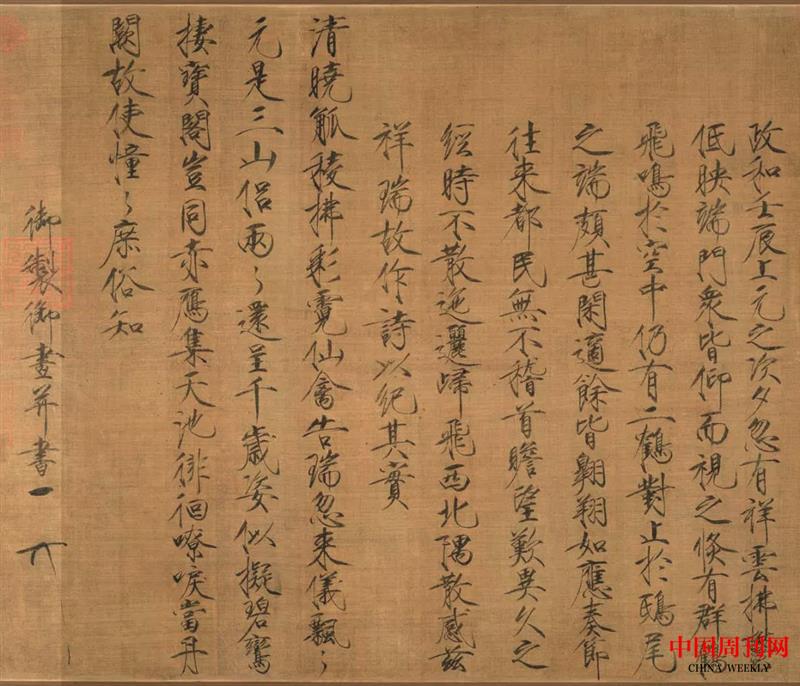 政和壬辰上元之次夕忽有祥雲拂鬱
低映端門衆皆仰而視之倏有群鶴
飛鳴於空中仍有二鶴對止於鴟尾
之端頗甚閑適餘皆翱翔如應奏節
往來都民無不稽首瞻望歎異久之
經時不散迤邐歸飛西北隅散感茲
祥瑞故作詩以紀其實
清曉觚稜拂彩霓仙禽告瑞忽來儀飄〻
元是三山侶兩〻還呈千歲姿似擬碧鸞
棲寶閣豈同赤鴈集天池徘徊嘹唳當丹
闕故使憧〻庶俗知
御製御畫并書
中国周刊网
CHINA WEEKLY